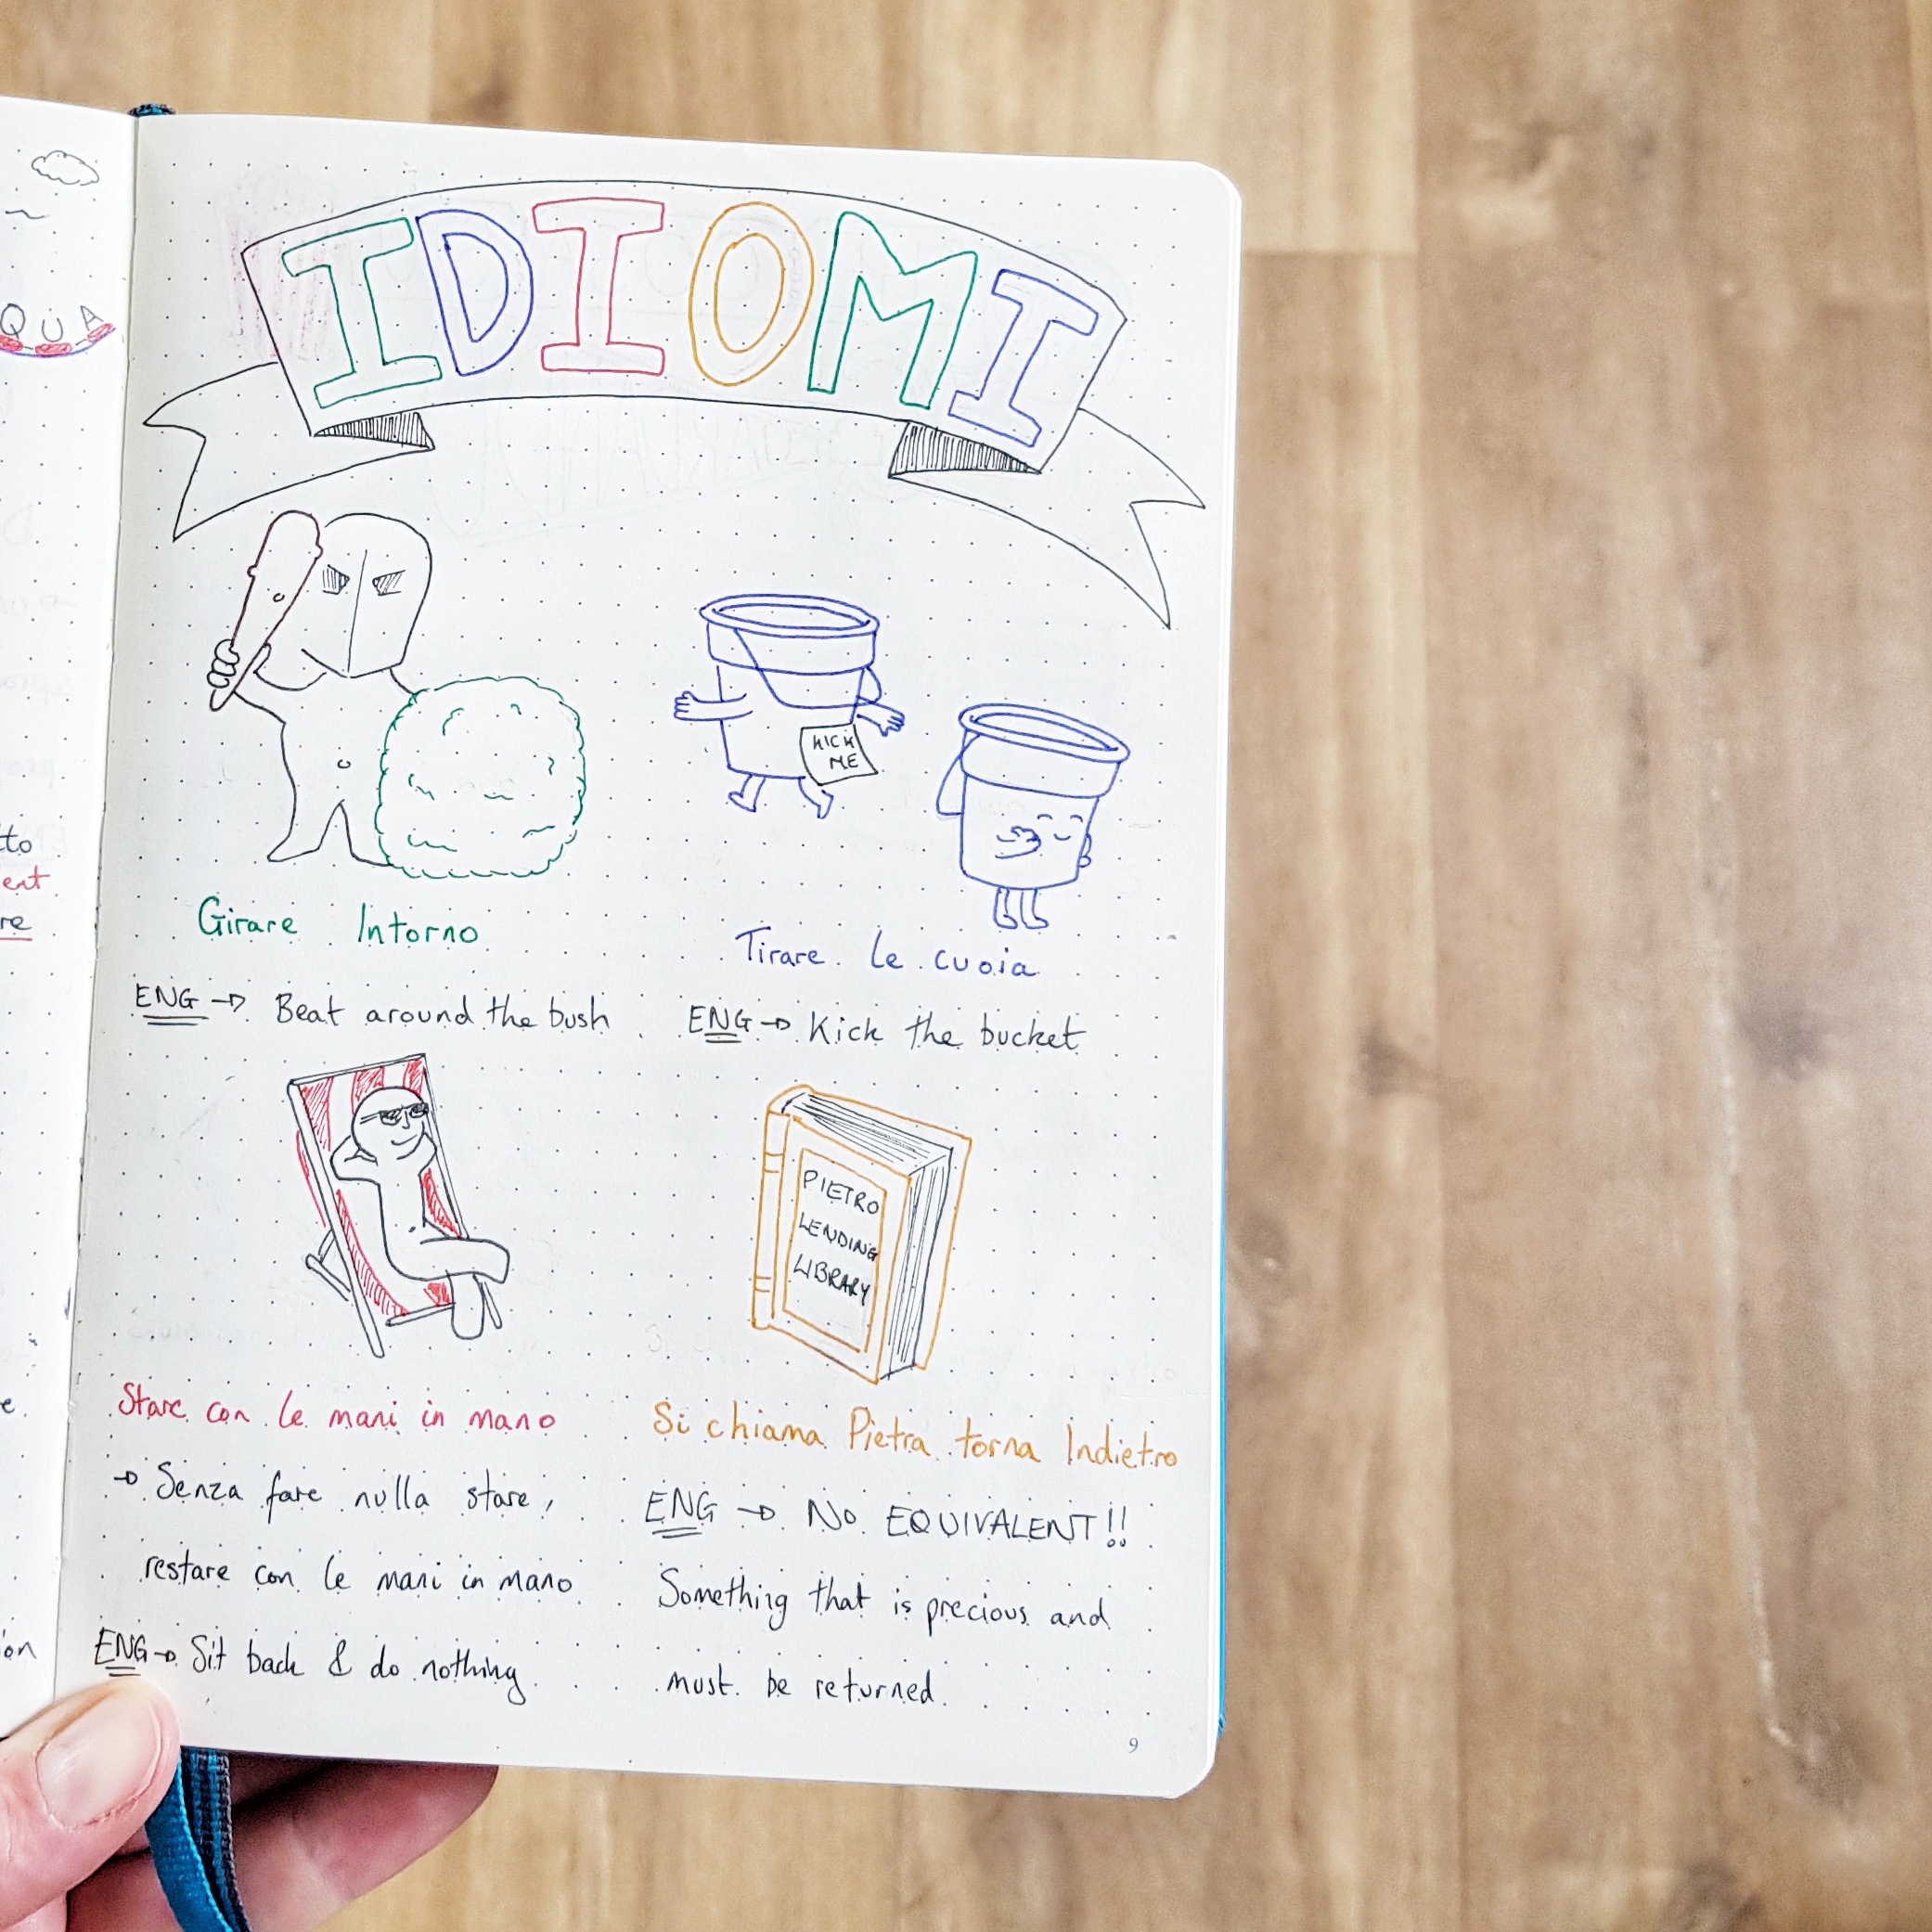 QUA
tto
ent
re
e
on
IDIOMI
KICK
ME
Girare Intorno
ENG → Beat around the bush
Tirare le cuoia
ENG → Kick the bucket
PIETRO
LENDING
LIBRARY
Stare con le mani in mano
→ Senza fare nulla stare,
restare con le mani in mano
ENG → Sit back & do nothing
Si chiama Pietra torna Indietro
ENG → NO EQUIVALENT!!
Something that is precious and
must be returned.
9